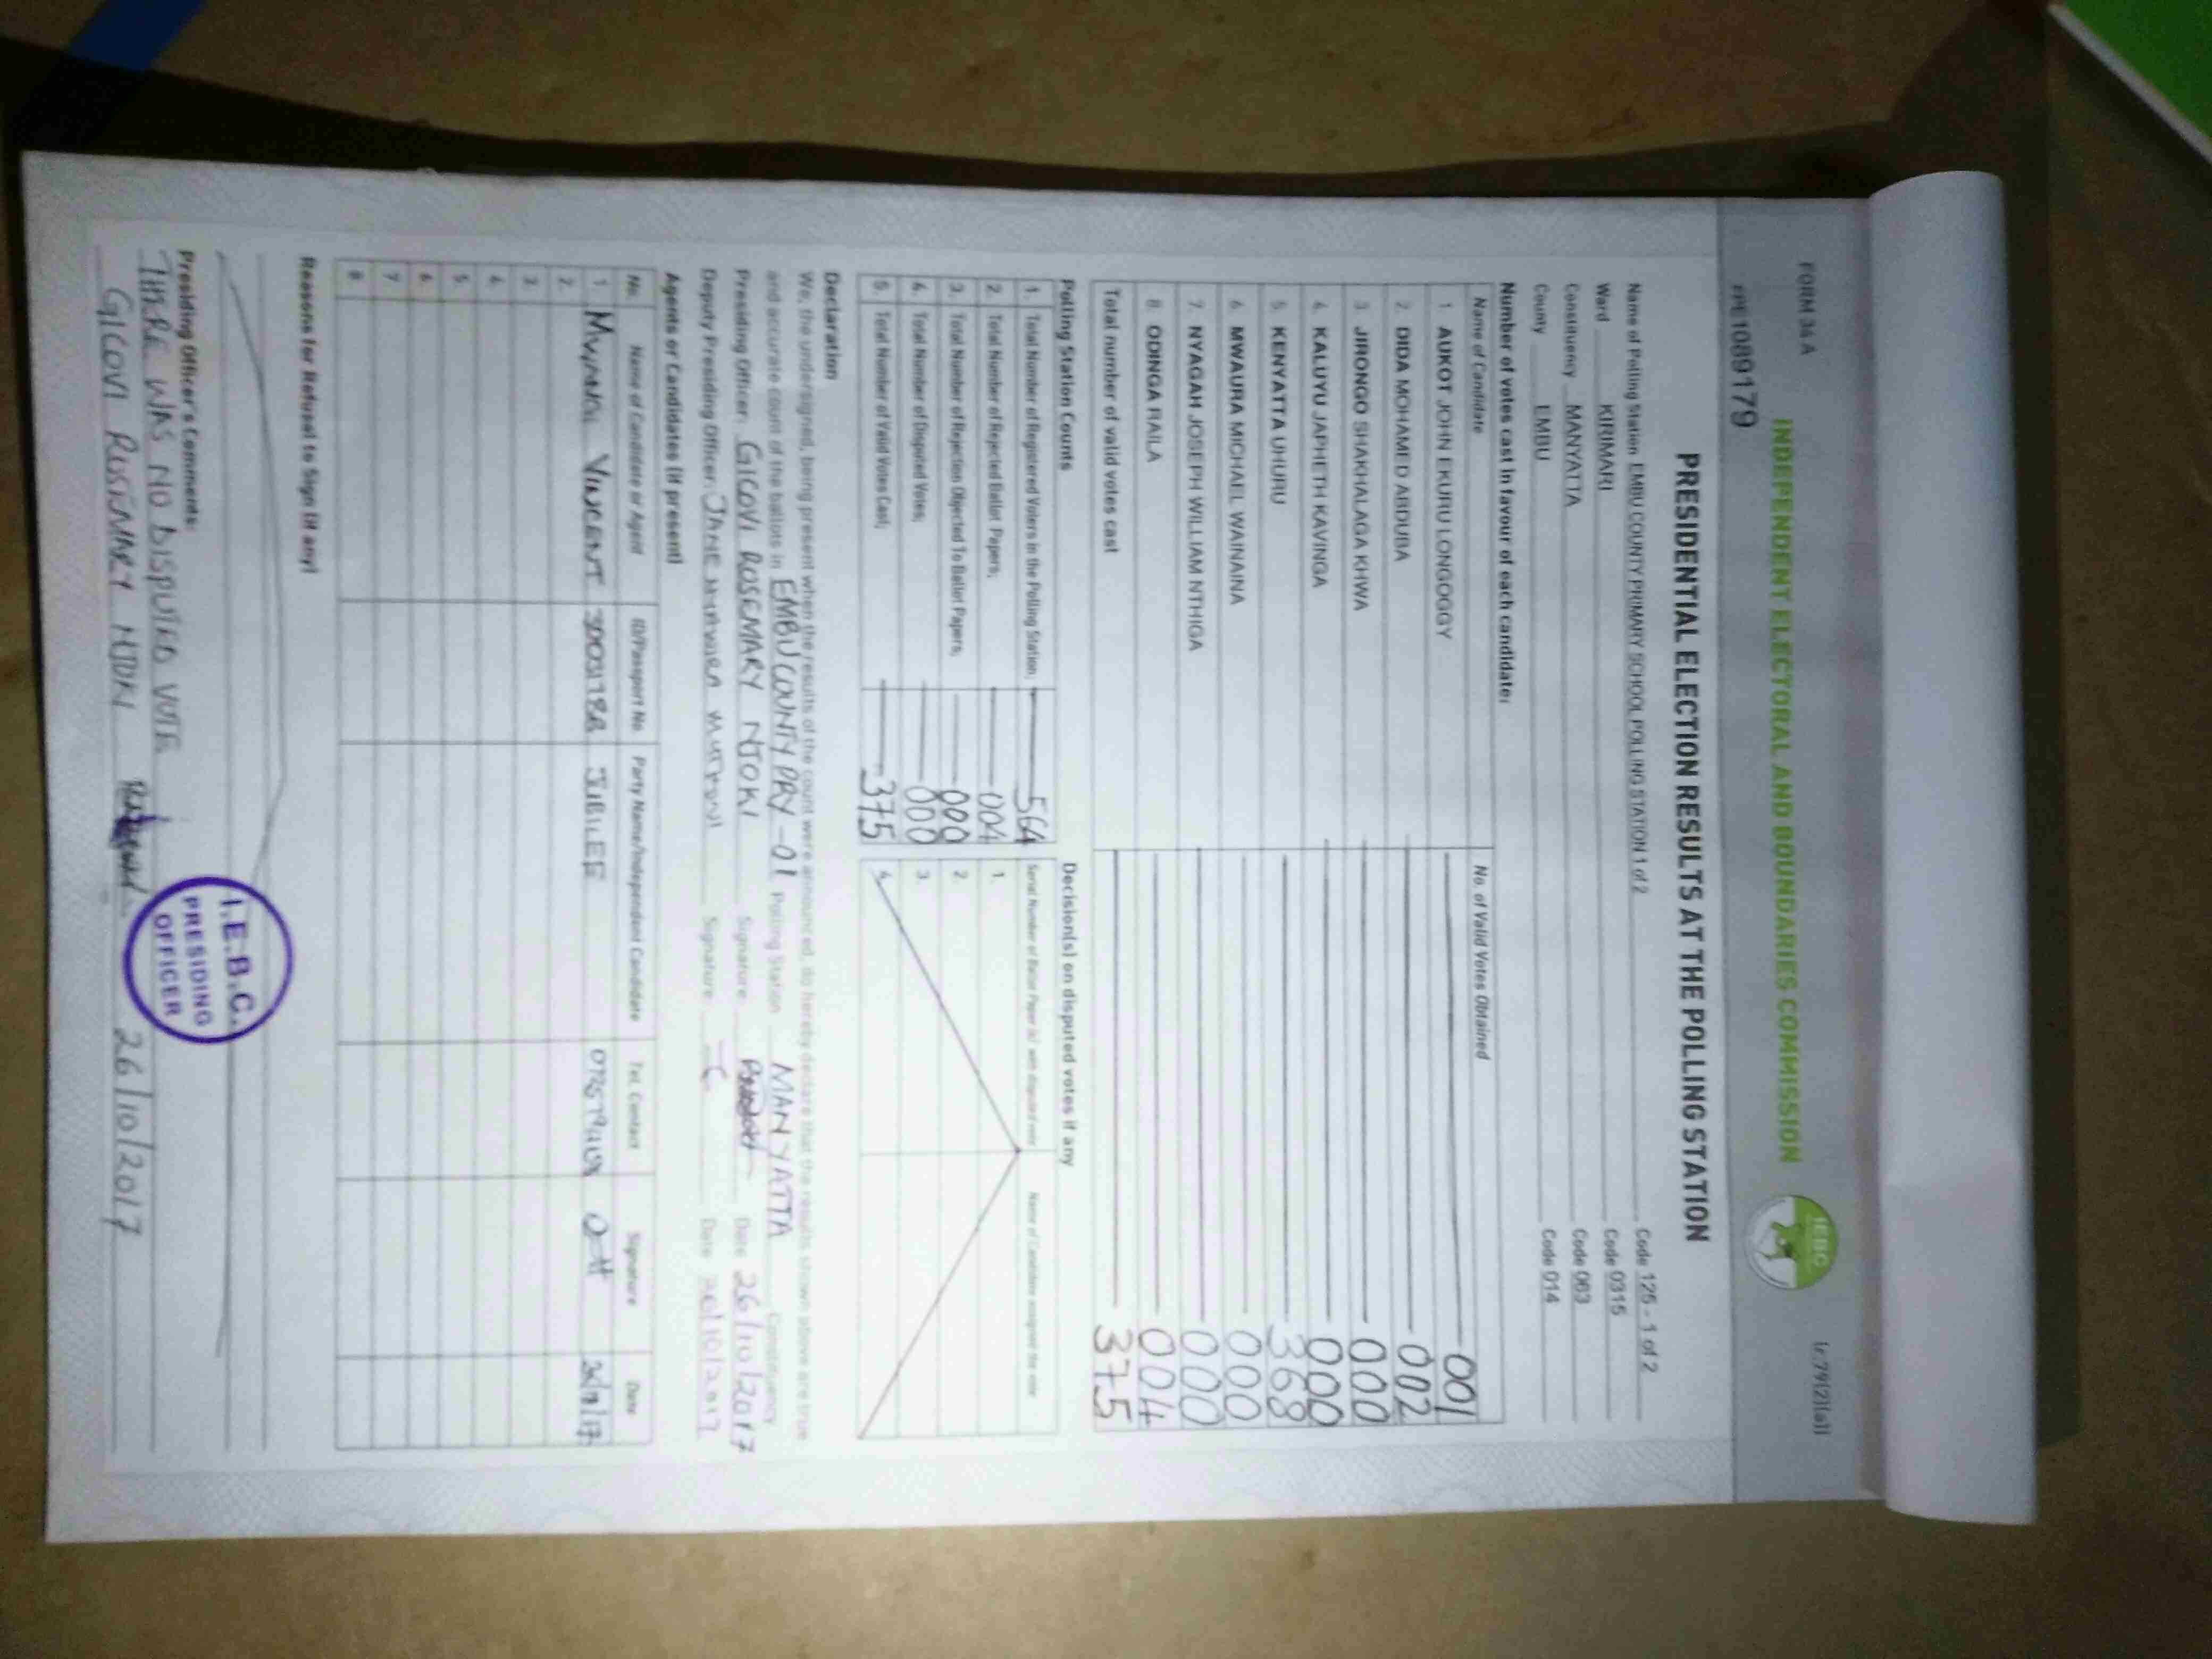 FORM 34 A
r.79(2)(a))
INDEPENDENT ELECTORAL AND BOUNDARIES COMMISSION
IEBC
1089179
PRESIDENTIAL ELECTION RESULTS AT THE POLLING STATION
Name of Polling Station EMBU COUNTY PRIMARY SCHOOL POLLING STATION 1 of 2 Code 125 - 1 of 2
Ward KIRIMARI Code 0315
Constituency MANYATTA Code 063
County EMBU Code 014
Number of votes cast in favour of each candidate:
Name of Candidate No. of Valid Votes Obtained
1 AUKOT JOHN EKURU LONGOGGY 001
2 DIDA MOHAMED ABDUBA 002
3 JIRONGO SHAKHALAGA KHWA 000
4 KALUYU JAPHETH KAVINGA 000
5 KENYATTA UHURU 368
6 MWAURA MICHAEL WAINAINA 000
7. NYAGAH JOSEPH WILLIAM NTHIGA 000
8 ODINGA RAILA 004
Total number of valid votes cast 375
Polling Station Counts
1. Total Number of Registered Voters in the Polling Station; 564
2. Total Number of Rejected Ballot Papers; 004
3. Total Number of Rejection Objected To Ballot Papers; 000
4. Total Number of Disputed Votes; 000
5. Total Number of Valid Votes Cast; 375
Decision(s) on disputed votes if any
Serial Number of Ballot Paper (s) with disputed vote Name of Candidate assigned the vote
1.
2.
3.
4.
Declaration
We, the undersigned, being present when the results of the count were announced, do hereby declare that the results shown above are true
and accurate count of the ballots in EMBU COUNTY PRY - 01 Polling Station MANYATTA Constituency
Presiding Officer: GICOVI ROSEMARY NJOKI Signature Date 26/10/2017
Deputy Presiding Officer: JANE Signature Date 26/10/2017
Agents or Candidates (if present)
No. Name of Candidate or Agent ID/Passport No Party Name/Independent Candidate Tel. Contact Signature Date
1 VINCENT JUBILEE
2.
3.
4.
5
6
7
8
Reasons for Refusal to Sign (if any)
Presiding Officer's Comments:
THERE WAS NO DISPUTED VOTE
GICOVI ROSEMARY NJOKI 26/10/2017
I.E.B.C.
PRESIDING
OFFICER